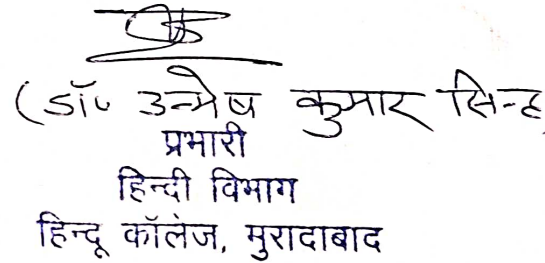 (डॉ० उन्मेष कुमार सिन्ह
प्रभारी
हिन्दी विभाग
हिन्दू कॉलेज, मुरादाबाद